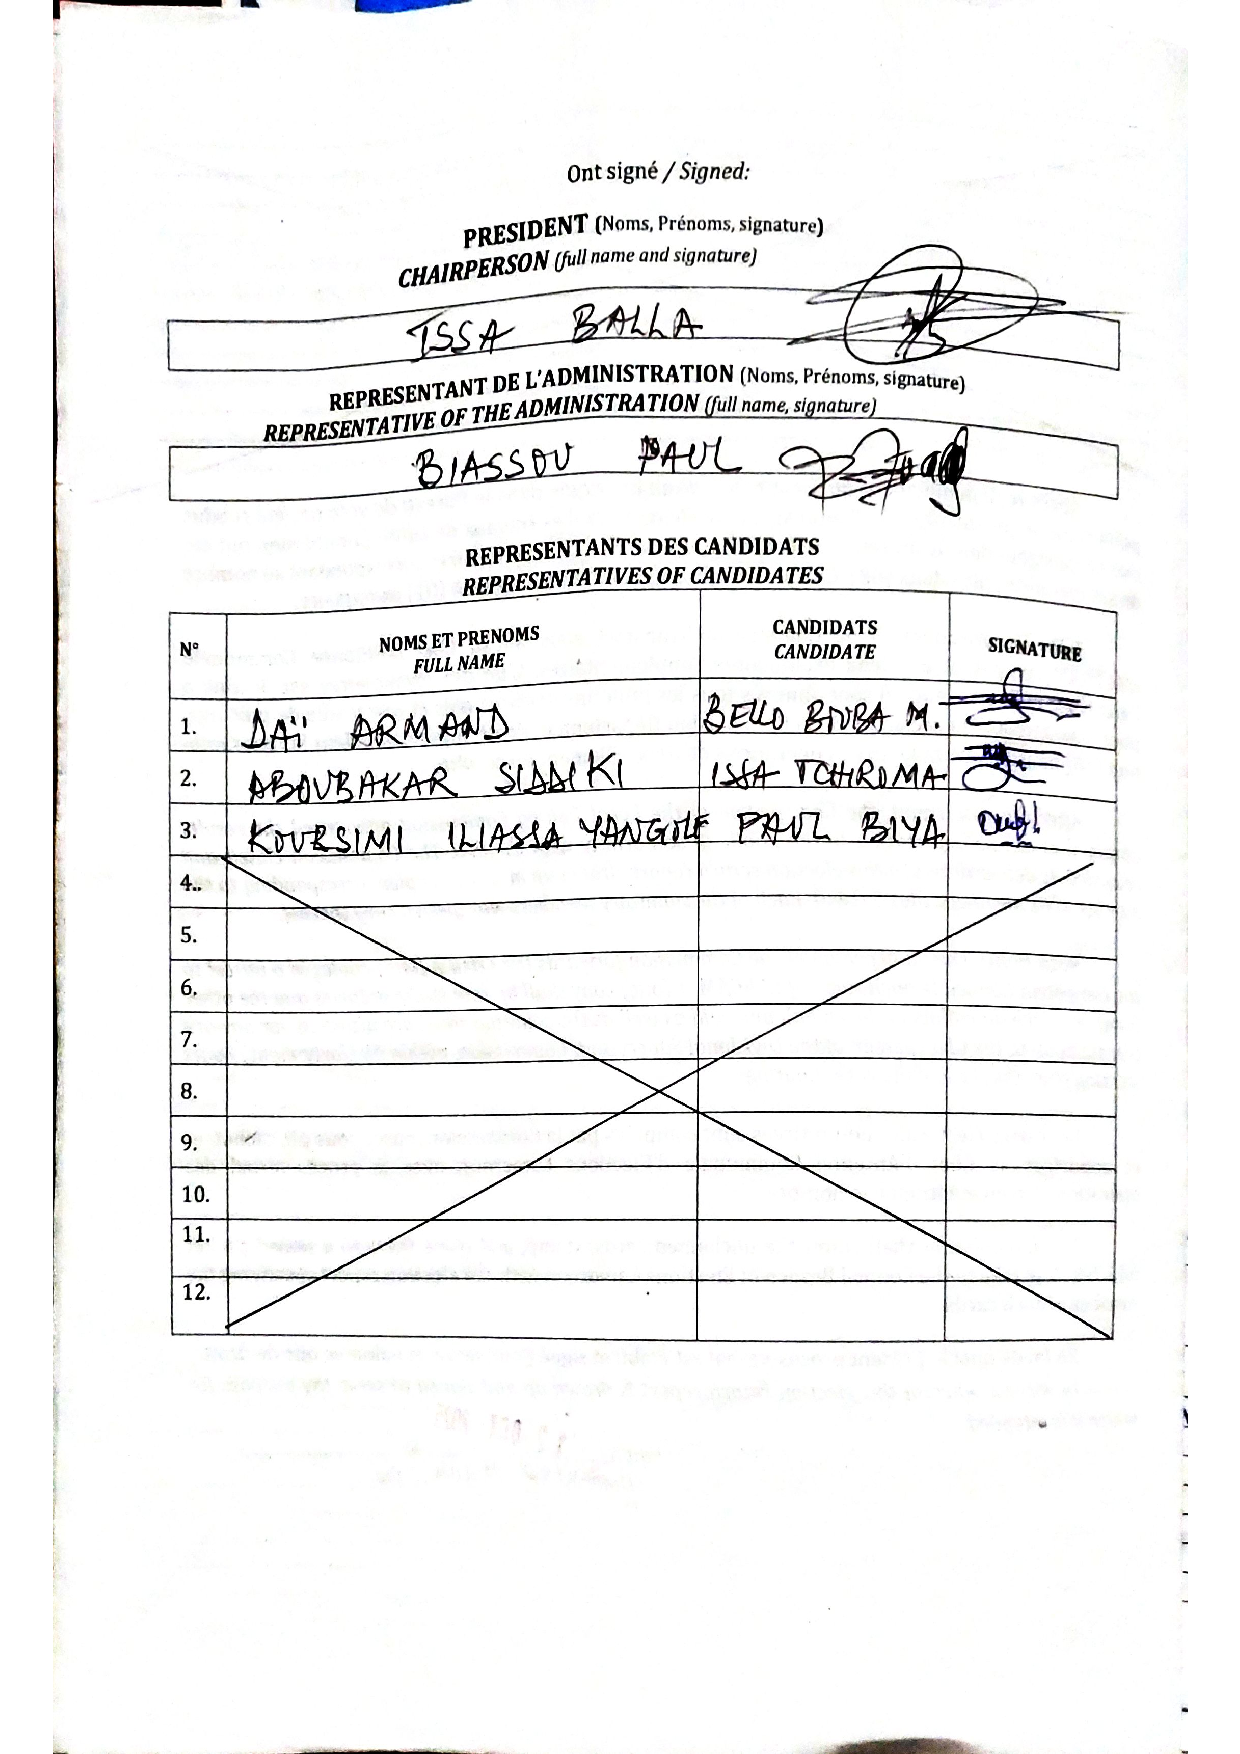 Ont signé / Signed:
PRESIDENT (Noms, Prénoms, signature)
CHAIRPERSON (full name and signature)
ISSA BALLA
REPRESENTANT DE L'ADMINISTRATION (Noms, Prénoms, signature)
REPRESENTATIVE OF THE ADMINISTRATION (full name, signature)
BIASSOU PAUL
REPRESENTANTS DES CANDIDATS
REPRESENTATIVES OF CANDIDATES
N° NOMS ET PRENOMS CANDIDATS SIGNATURE
FULL NAME CANDIDATE
1. DAÏ ARMAND BELLO BOUBA M.
2. ABOUBAKAR SIDDIKI ISSA TCHIROMA
3. KOURSIMI ILIASSA PAUL BIYA
4..
5.
6.
7.
8.
9.
10.
11.
12.